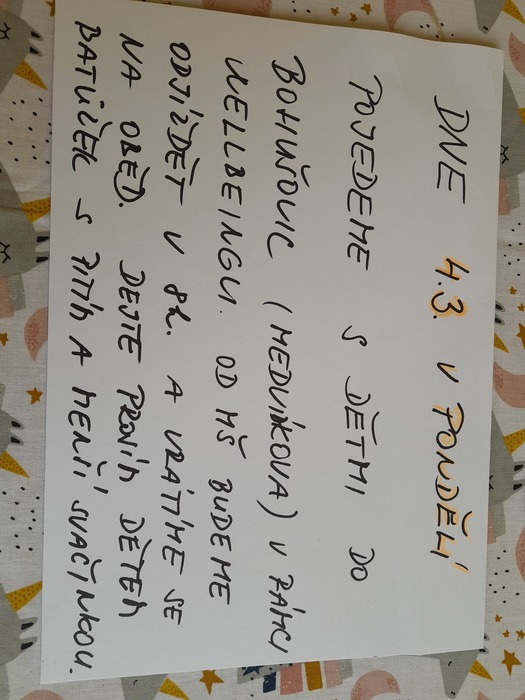 DNE 4.3. V PONDĚLÍ
POJEDEME S DĚTMI DO
BOHUŇOVIC (MEDVÍKOVA) V RÁMCI
WELLBEINGU. OD MŠ BUDEME
ODJÍŽDĚT V 8h. A VRÁTÍME SE
NA OBĚD. DEJTE PROSÍM DĚTEM
BATŮŽEK S PITÍM A MENŠÍ SVAČINKOU.